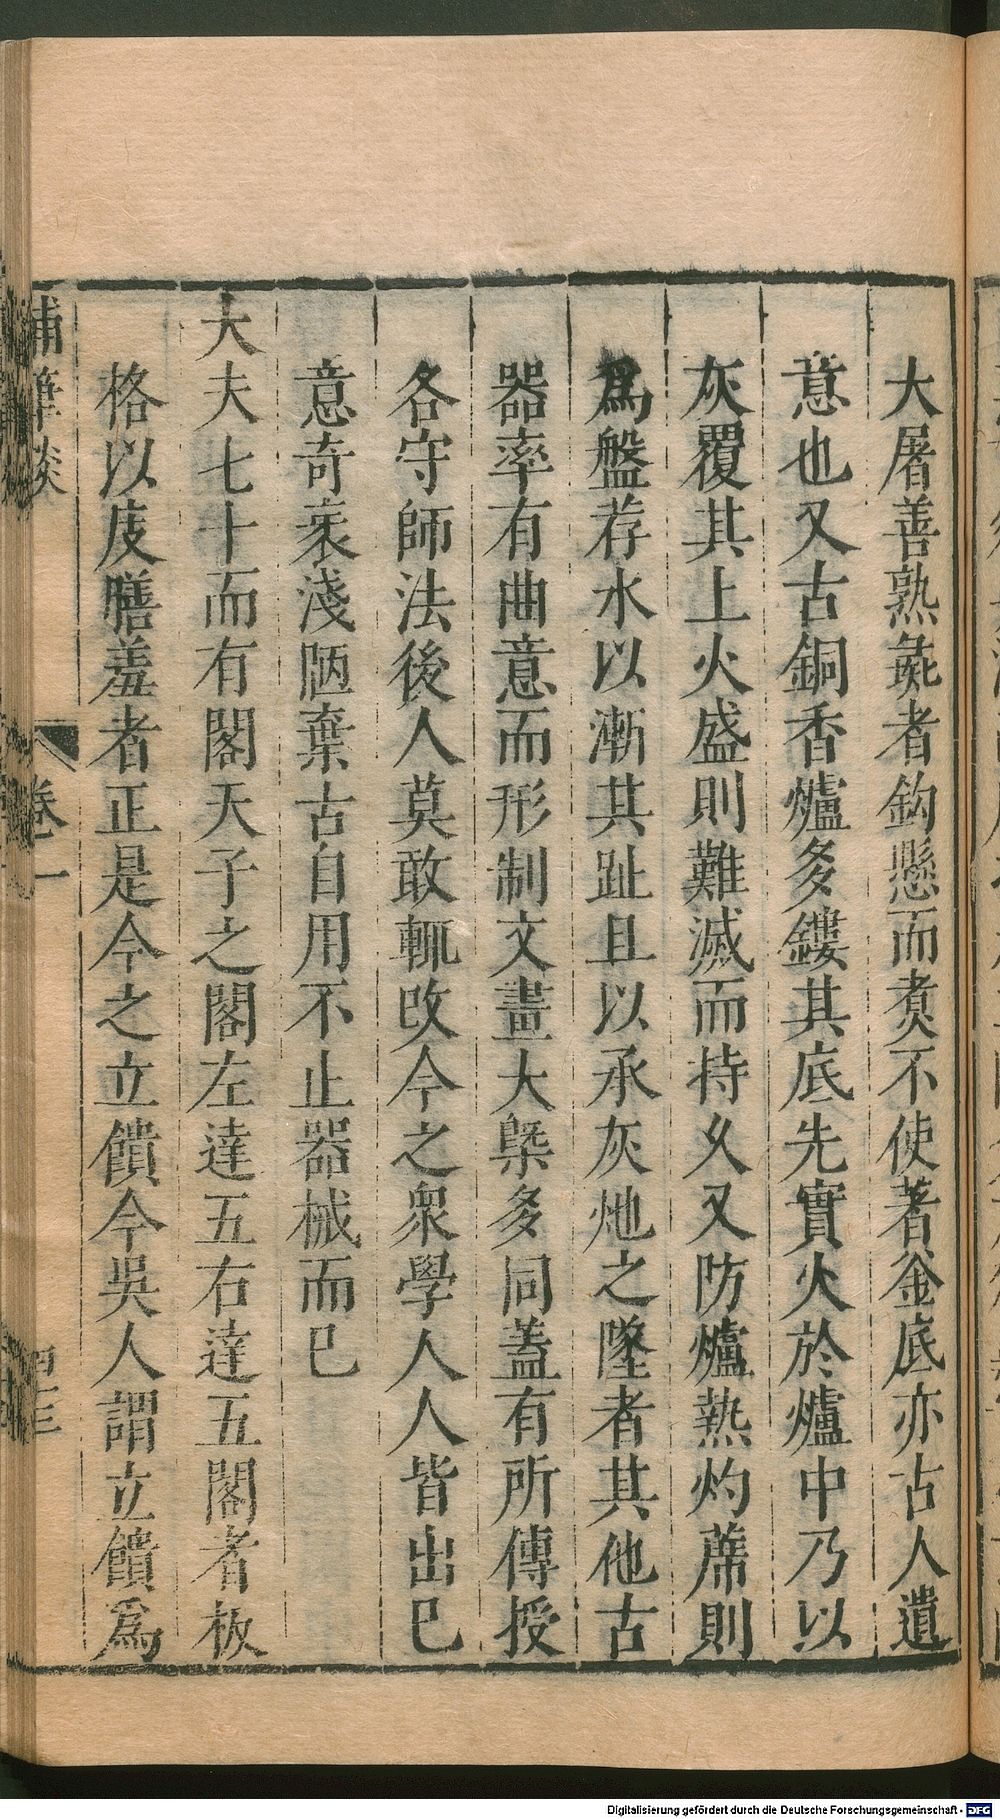 大屠善熟彘者鈎懸而煑不使著釜底亦古人遺
意也又古銅香爐多鏤其底先實火於爐中乃以
灰覆其上火盛則難滅而持久又防爐熱灼蓆則
爲盤荐水以漸其趾且以承灰灺之墜者其他古
器率有曲意而形制文畫大槩多同蓋有所傳授
各守師法後人莫敢輒改今之衆學人人皆出已
意奇衺淺陋棄古自用不止器械而已
大夫七十而有閣天子之閣左達五右達五閣者板
格以庋膳羞者正是今之立饋今吳人謂立饋爲
補筆談
卷一
Digitalisierung gefördert durch die Deutsche Forschungsgemeinschaft - DFG